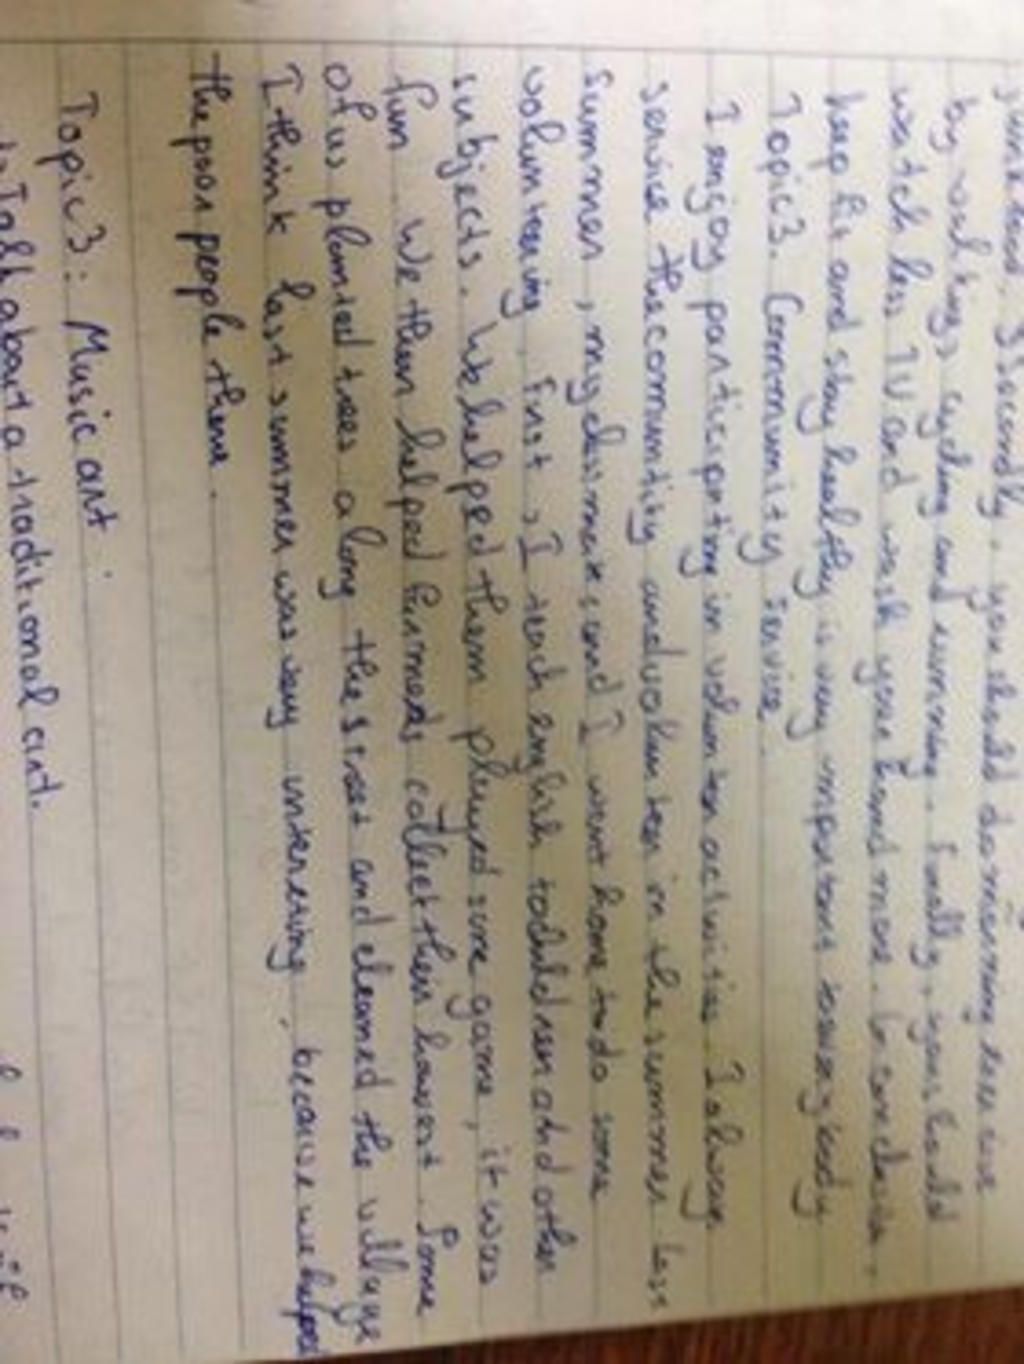 junk food. Secondly, you should do morning exercise
by walking, cycling and running. Finally, you should
watch less TV and wash your hand more. In conclusion,
keep fit and stay healthy is very important to every body
Topic3. Community service.
I enjoy participating in volunteer activities I always
service the community and volunteer in the summer last
summer, my classmates and I went home to do some
volunteering. First, I teach english to children and other
subjects. We helped them played some game, it was
fun. We then helped farmers collect their harvest. Some
of us planted trees along the street and cleaned the village
I think last summer was very interesting, because we helped
the poor people there.
Topic3: Music art.
Talk about a traditional art.